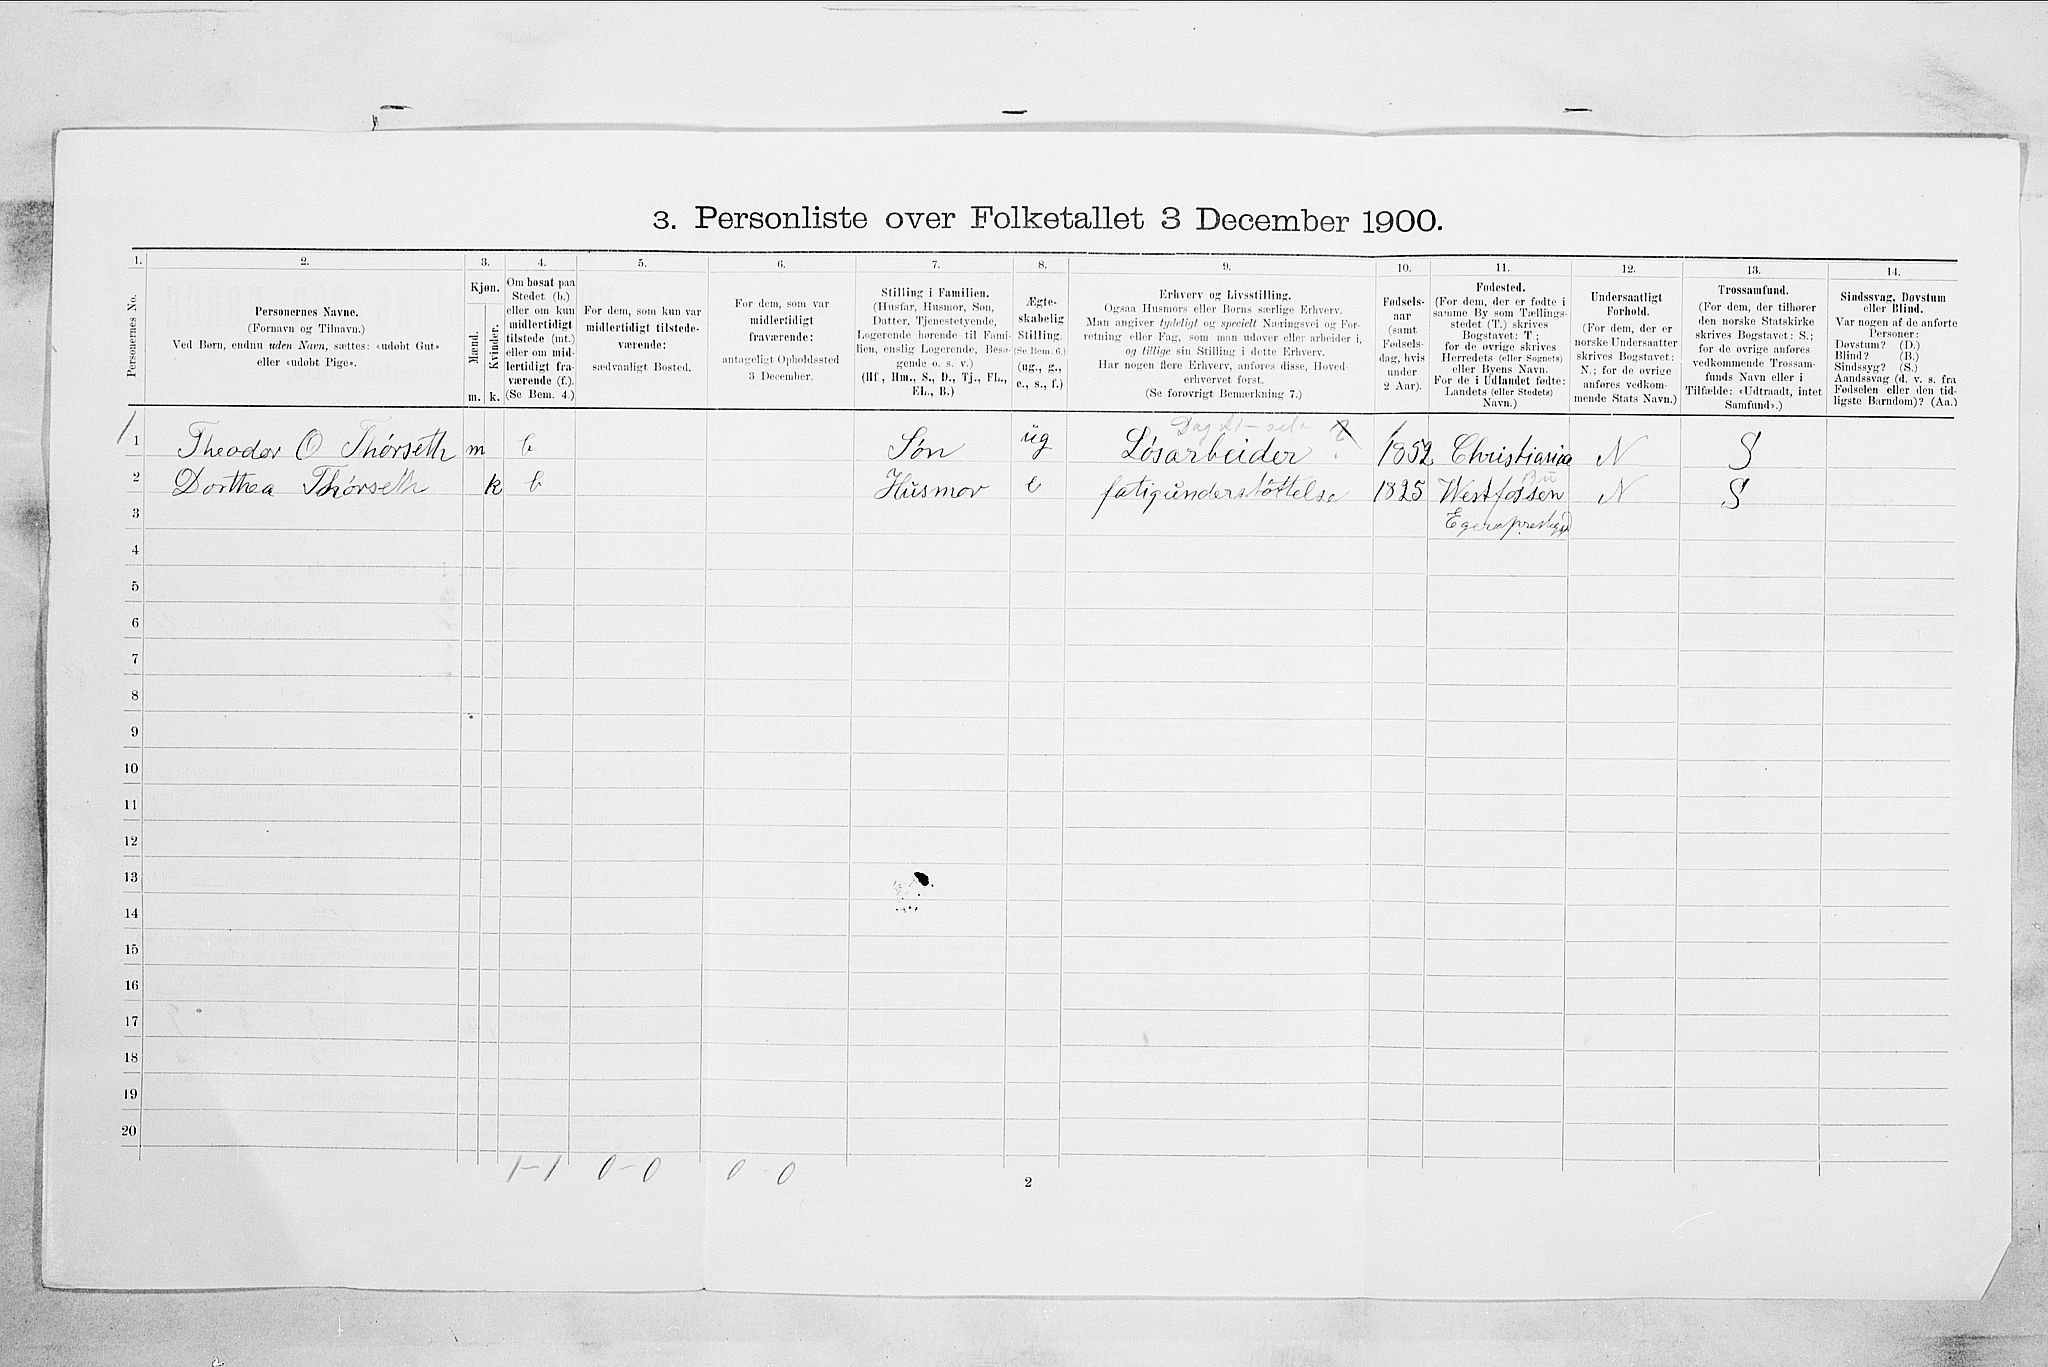 3. Personliste over Folketallet 3 December 1900.
1. 2. 3. 4. 5. 6. 7. 8. 9. 10. 11. 12. 13. 14.
Personernes No.
Personernes Navne.
(Fornavn og Tilnavn.)
Ved Børn, endnu uden Navn, sættes: «udøbt Gut»
eller «udøbt Pige».
Kjøn.
Mænd.
Kvinder.
m. k.
Om bosat paa
Stedet (b.)
eller om kun
midlertidigt
tilstede (mt.)
eller om mid-
lertidigt fra-
værende (f.).
(Se Bem. 4.)
For dem, som kun var
midlertidigt tilstede-
værende:
sædvanligt Bosted.
For dem, som var
midlertidigt
fraværende:
antageligt Opholdssted
3 December.
Stilling i Familien.
(Husfar, Husmor, Søn,
Datter, Tjenestetyende,
Logerende hørende til Fami-
lien, enslig Logerende, Besø-
gende o. s. v.)
(Hf., Hm., S., D., Tj., FL.,
EL., B.)
Ægte-
skabelig
Stilling.
(Se Bem. 6.)
(ug., g.,
e., s., f.)
Erhverv og Livsstilling.
Ogsaa Husmors eller Børns særlige Erhverv.
Man angiver tydeligt og specielt Næringsvei og For-
retning eller Fag, som man udøver eller arbeider i,
og tillige sin Stilling i dette Erhverv.
Har nogen flere Erhverv, anføres disse, Hoved-
erhvervet først.
(Se forøvrigt Bemærkning 7.)
Fødsels-
aar
(samt
Fødsels-
dag, hvis
under
2 Aar).
Fødested.
(For dem, der er fødte i
samme By som Tællings-
stedet (T.) skrives
Bogstavet: T.;
for de øvrige skrives
Herredets (eller Sognets)
eller Byens Navn.
For de i Udlandet fødte:
Landets (eller Stedets)
Navn.)
Undersaatligt
Forhold.
(For dem, der er
norske Undersaatter
skrives Bogstavet:
N.; for de øvrige
anføres vedkom-
mende Stats Navn.)
Trossamfund.
(For dem, der tilhører
den norske Statskirke
skrives Bogstavet: S.;
for de øvrige anføres
vedkommende Trossam-
funds Navn eller i
Tilfælde: «Udtraadt, intet
Samfund».)
Sindssvag, Døvstum
eller Blind.
Var nogen af de anførte
Personer:
Døvstum? (D.)
Blind? (B.)
Sindssyg? (S.)
Aandssvag (d. v. s. fra
Fødselen eller den tid-
ligste Barndom)? (Aa.)
1 Theodor O Thørseth m b Søn ug Løsarbeider 1852 Christiania N S
2 Dorthea Thørseth k b Husmor e fatigunderstøttelse 1825 Westfossen N S
3
4
5
6
7
8
9
10
11
12
13
14
15
16
17
18
19
20
1-1 0-0 0-0
2